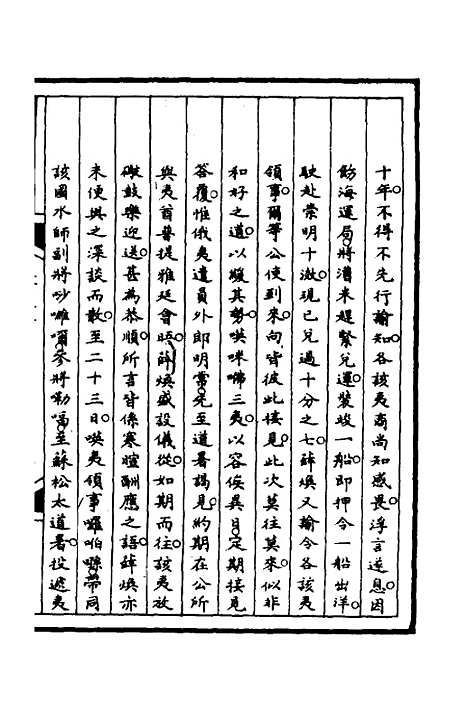 十年。不得不先行諭知。各該夷商尚知感畏。浮言遂息。因
飭海運局。將漕米趕緊兌運。裝竣一船。即押令一船出洋。
駛赴崇明十滧。現已兌過十分之七。薛煥又諭令各該夷
領事。爾等公使到來。向皆彼此接見。此次莫往莫來。似非
和好之道。以緩其勢。𠸄咪㗶三夷。以容俟異日。定期接見
答覆。惟俄夷遣員外郎明常。先至道署謁見。約期在公所
與夷酋普提雅廷會晤。薛煥盛設儀從。如期而往。該夷放
礮鼓樂迎送。甚為恭順。所言皆係寒暄酬應之語。薛煥亦
未便與之深談而散。至二十三日。𠸄夷領事囉啪𠺕。帶同
該國水師副將吵囉嘓。參將勒嗝。至蘇松太道署。投遞夷